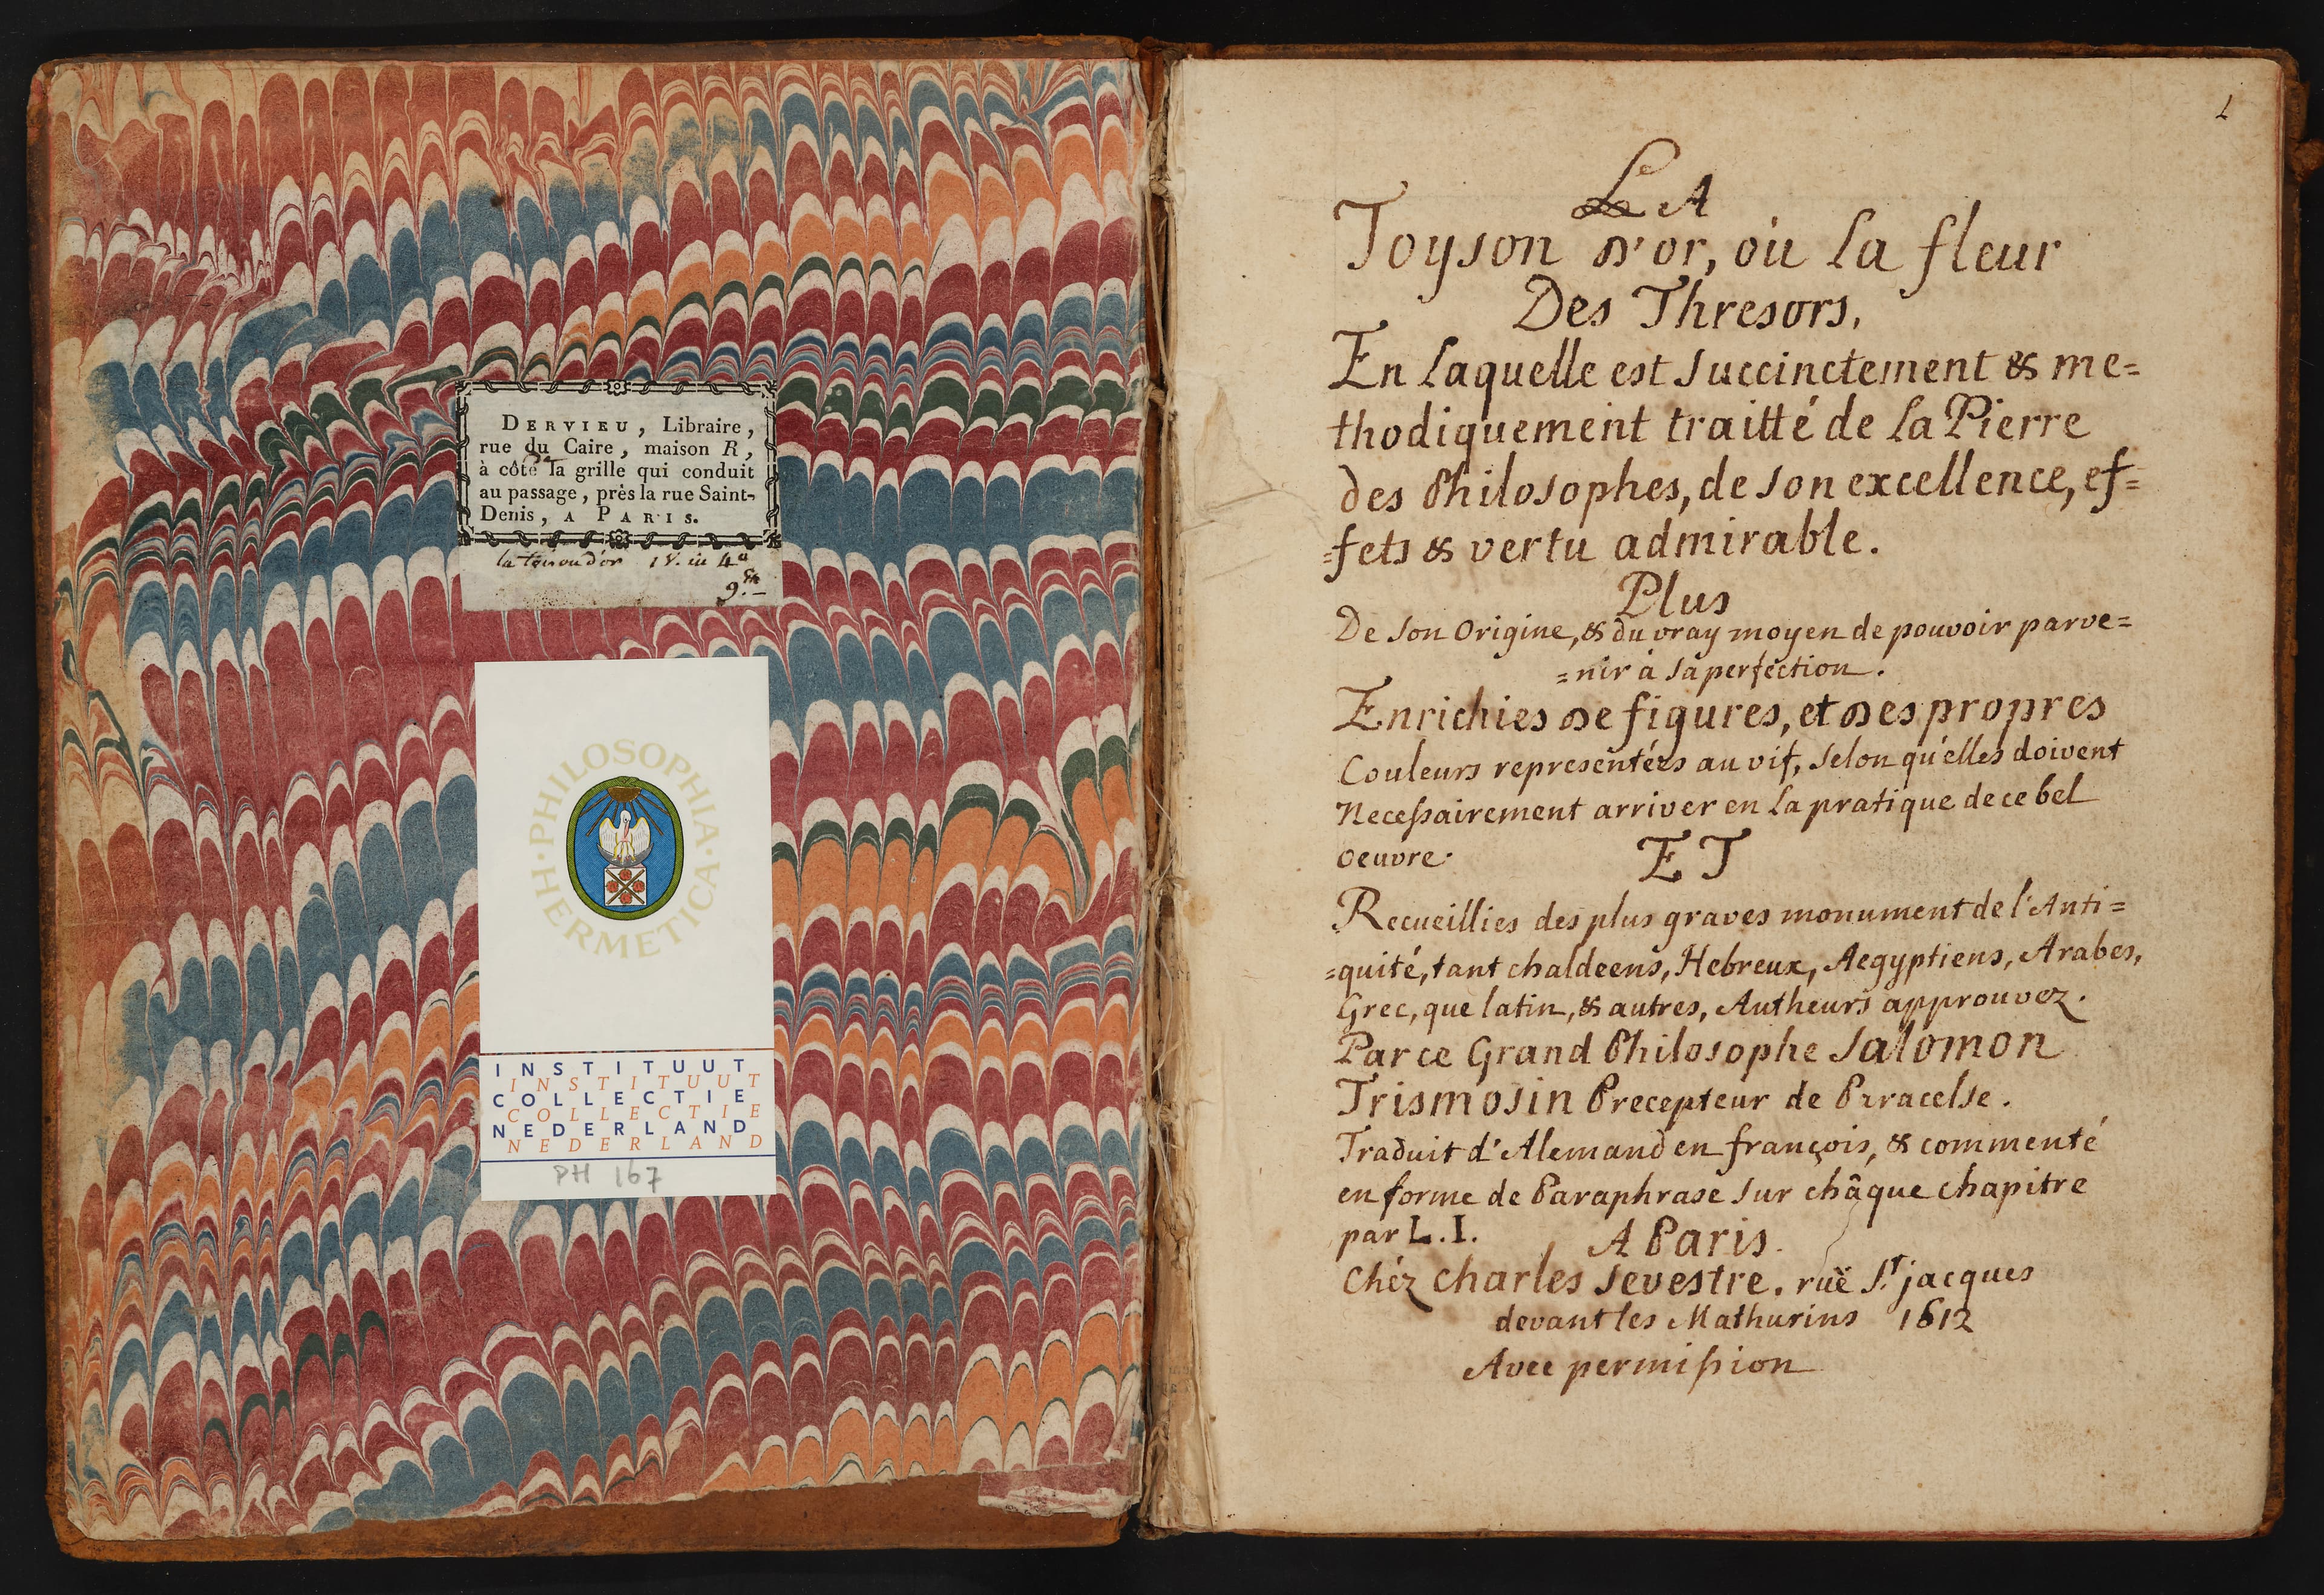 DERVIEU, Libraire,
rue du Caire, maison R,
à côté la grille qui conduit
au passage, près la rue Saint-
Denis, A PARIS.
1 V. in 4°
9.
PHILOSOPHIA · HERMETICA ·
INSTITUUT
INSTITUUT
COLLECTIE
COLLECTIE
NEDERLAND
NEDERLAND
PH 167
1
LA
Toyson D'or, ou la fleur
Des Thresors,
En laquelle est succinctement & me=
thodiquement traitté de la Pierre
des Philosophes, de son excellence, ef=
=fets & vertu admirable.
Plus
De son Origine, & du vray moyen de pouvoir parve=
=nir à sa perfection.
Enrichies De figures, et Des propres
Couleurs representées au vif, selon qu'elles doivent
Necessairement arriver en la pratique de ce bel
oeuvre.
ET
Recueillies des plus graves monument de l'Anti=
=quité, tant chaldeens, Hebreux, Aegyptiens, Arabes,
Grec, que latin, & autres, Autheurs approuvez.
Par ce Grand Philosophe Salomon
Trismosin Precepteur de Parracelse.
Traduit d'Alemand en françois, & commenté
en forme de Paraphrase sur châque chapitre
par L.I.
A Paris.
Chéz charles sevestre. ruë St jacques
devant les Mathurins 1612
Avec permission